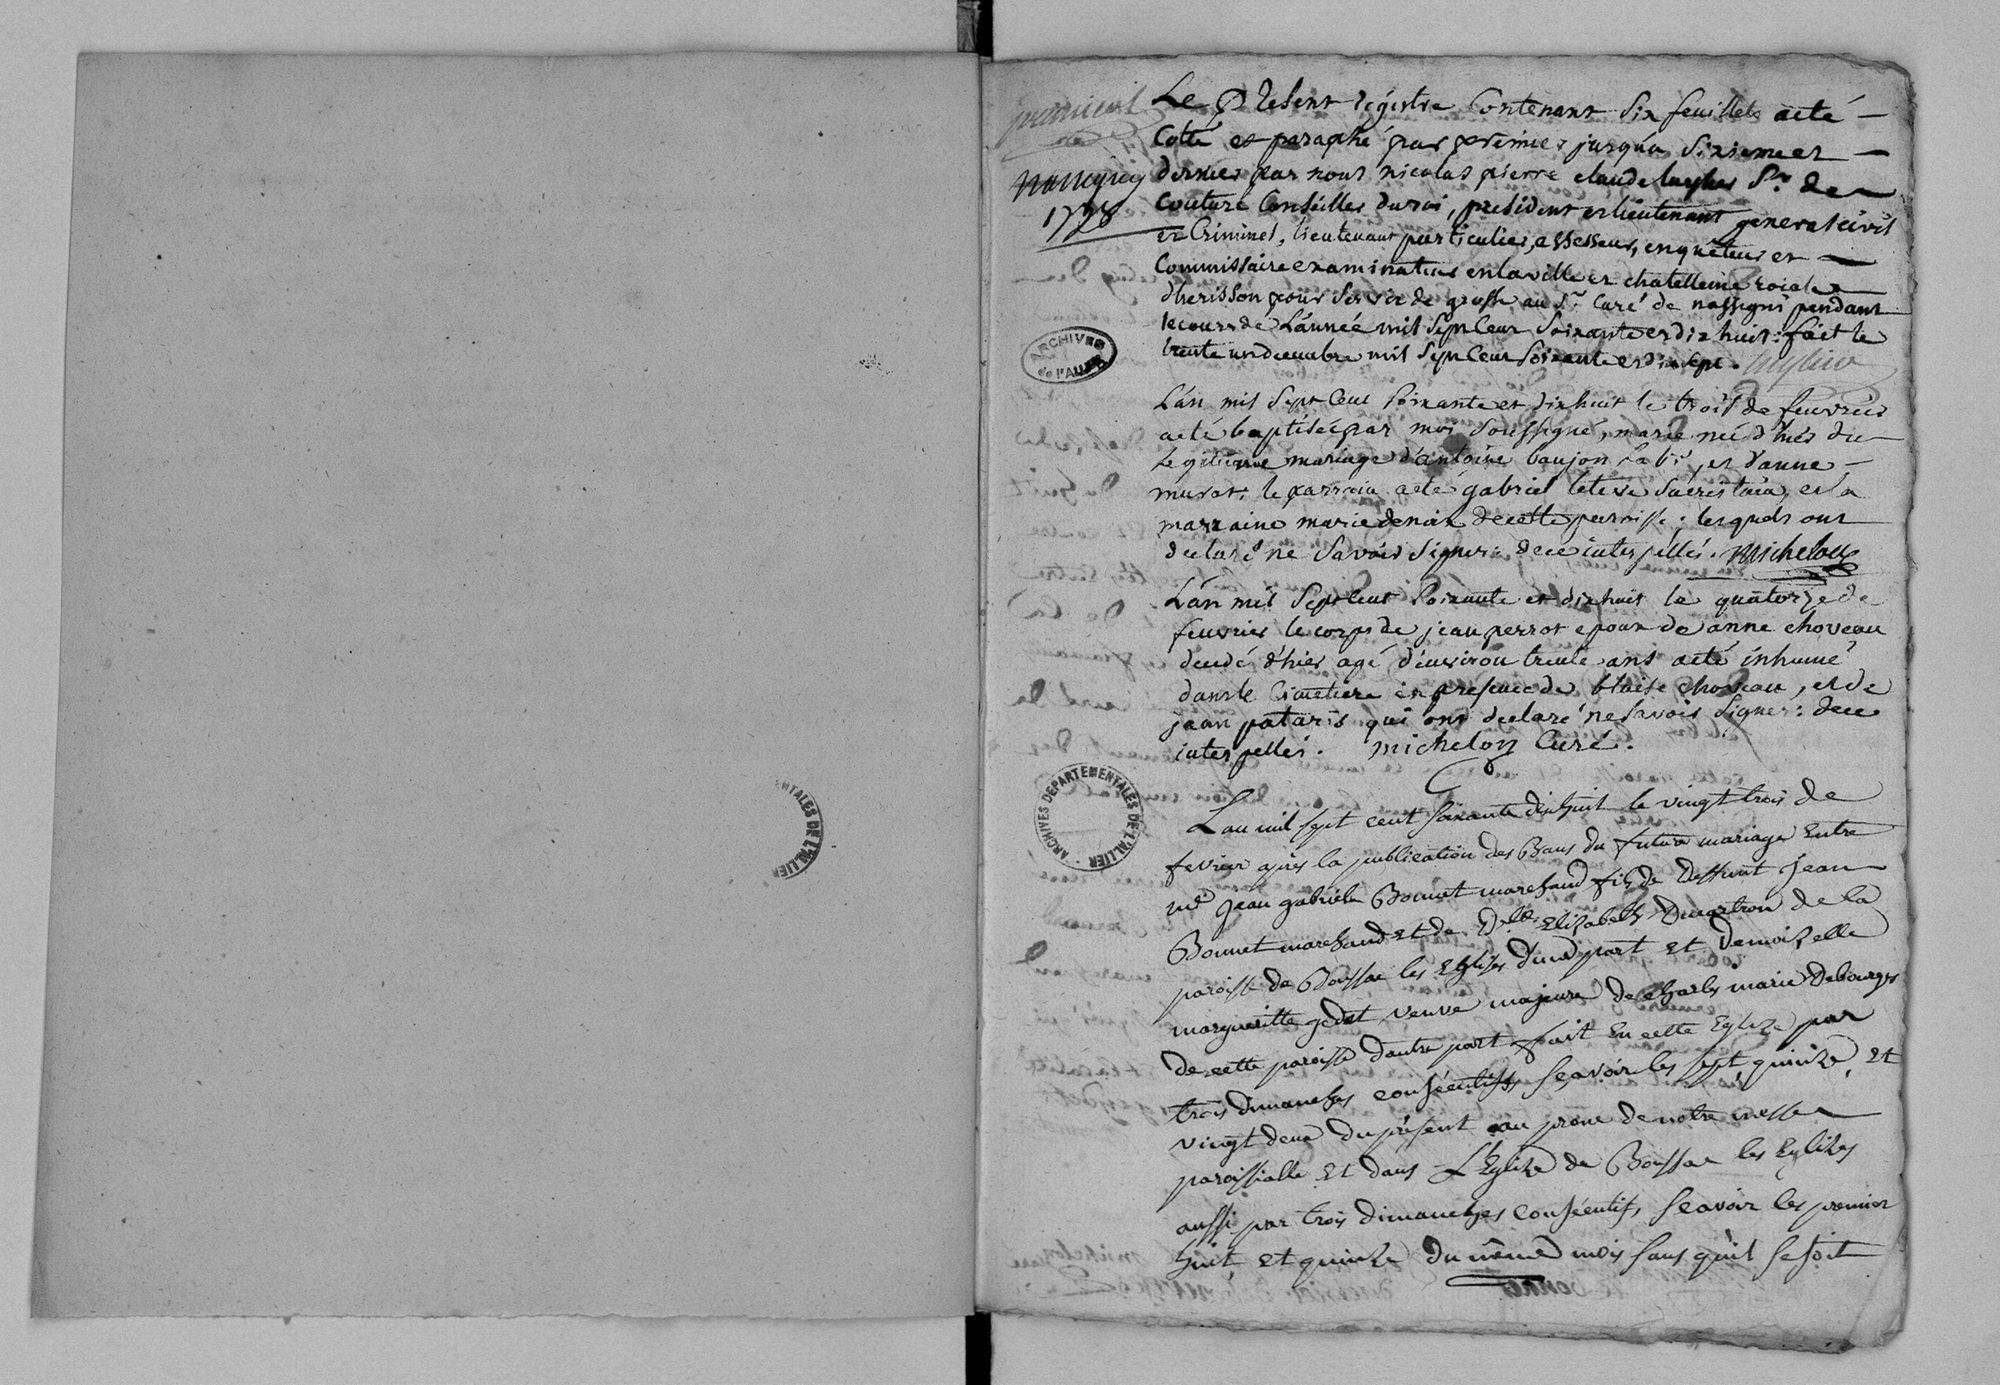 premier
Nassigny
1778
Le present régistre Contenant six feuillets aeté
Cotté et paraphé par premier jusqu'au sixieme et
dernier par nous nicolas pierre claude Sr. de
Couture Conseiller du roi, président et lieutenant general civil
et Criminel, lieutenant particulier, assesseur, enquêteur et
Commissaire examinateur en la ville et chatellenie roiale
d'herisson pour servir de grosse au Sr. Curé de nassigni pendant
le cours de L'année mil sept Cent soixante et dix huit: fait le
trente un decembre mil sept Cent soixante et dix sept.
ARCHIVES
de l'ALLIER
L'an mil sept Cent soixante et dix huit le trois de feuvrier
aeté baptisée par moi soussigné, marie née d'hier du
Legitime mariage d'antoine baujon et d'anne
murat: le parrain aeté gabriel leteve sacristain, et la
marraine marie denoix de cette parroisse: lesquels ont
declaré ne savoir signer: de ce interpellés. Michelon
L'an mil sept Cent soixante et dix huit le quatorze de
feuvrier le corps de jean perrot epoux de anne choveau
decedé d'hier agé d'environ trente ans aeté inhumé
dans le Cimetiere en presence de blaise choveau, et de
jean pataris qui ont declaré ne savoir signer: de ce
interpellés. michelon Curé.
ARCHIVES DEPARTEMENTALES DE L'ALLIER
NTALES DE L'ALLIER
L'an mil sept cent soixante dixhuit le vingt trois de
fevrier après la publication des Bans du futur mariage Entre
me Jean gabriel Bonnet marchand fils de deffunt Jean
Bonnet marchand et de dlle Elizabeth de la
paroisse de Boussac les Eglises d'une part et demoizelle
margueritte godet veuve majeure de charles marie Debourges
de cette paroisse d'autre part fait En cette Eglize par
trois dimanches conséentifs scavoir les sept, quinze, et
vingt deux du présent au prone de notre messe
paroissialle Et dans L'Eglize de Boussac les Eglizes
aussi par trois dimanches conséentifs scavoir les premier
huit et quinze du même mois sans qu'il se soit